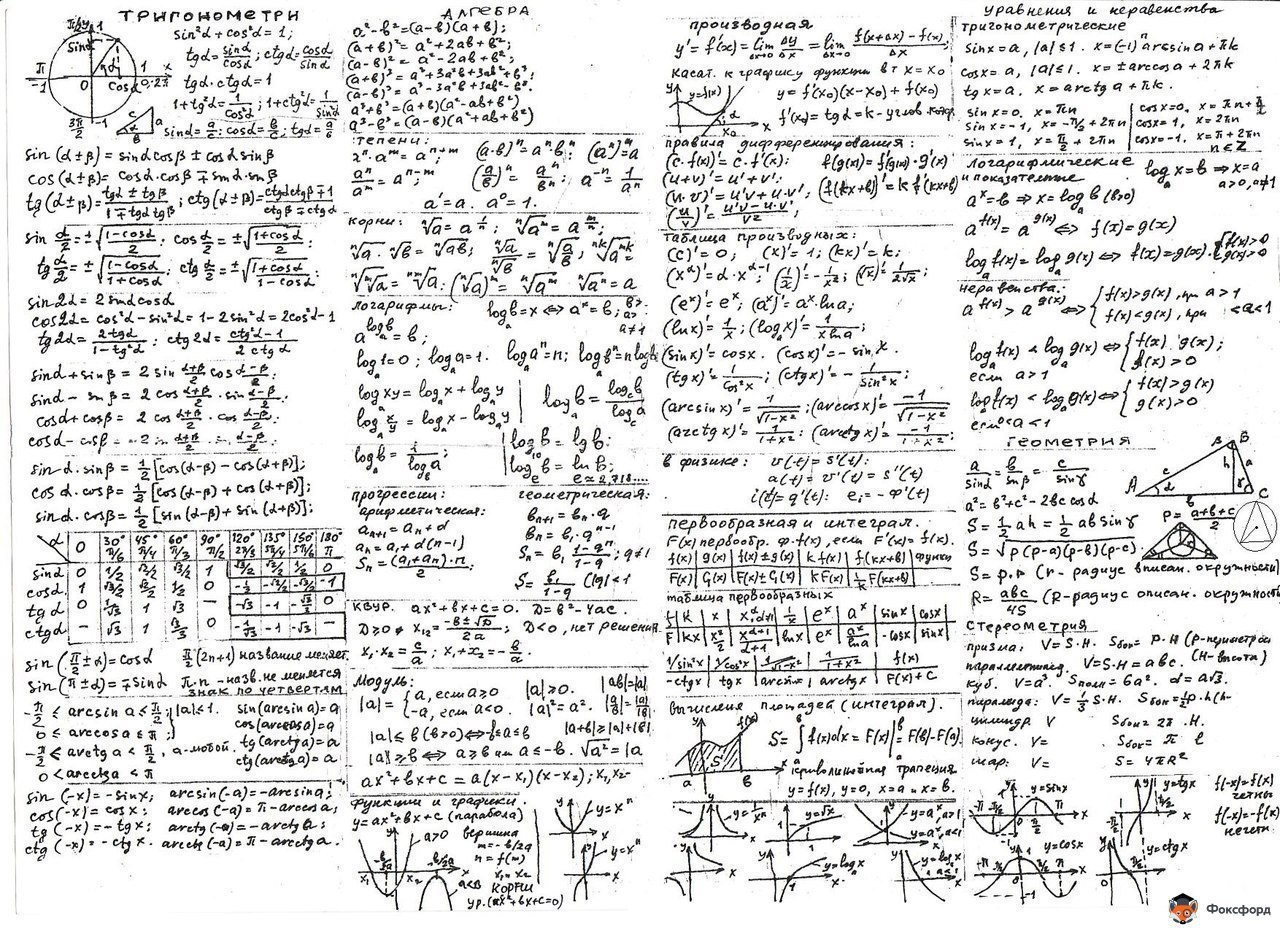 ТРИГОНОМЕТРИ
sin²α + cos²α = 1;
tgα = sinα/cosα; ctgα = cosα/sinα
tgα · ctgα = 1
1+tg²α = 1/cos²α; 1+ctg²α = 1/sin²α
sinα = a/c; cosα = b/c; tgα = a/b
sin(α±β) = sinα cosβ ± cosα sinβ
cos(α±β) = cosα·cosβ ∓ sinα·sinβ
tg(α±β) = (tgα ± tgβ)/(1 ∓ tgα tgβ); ctg(α±β) = (ctgα ctgβ ∓ 1)/(ctgβ ± ctgα)
sin α/2 = ±√((1-cosα)/2); cos α/2 = ±√((1+cosα)/2);
tg α/2 = ±√((1-cosα)/(1+cosα)); ctg α/2 = ±√((1+cosα)/(1-cosα));
sin2α = 2 sinα cosα
cos2α = cos²α - sin²α = 1 - 2sin²α = 2cos²α - 1
tg2α = 2tgα/(1-tg²α); ctg2α = (ctg²α-1)/(2ctgα)
sinα + sinβ = 2 sin (α+β)/2 cos (α-β)/2;
cosα + cosβ = 2 cos (α+β)/2 · cos (α-β)/2;
sinα·sinβ = 1/2 [cos(α-β) - cos(α+β)];
cosα·cosβ = 1/2 [cos(α-β) + cos(α+β)];
sinα·cosβ = 1/2 [sin(α-β) + sin(α+β)];
α 0 30° π/6 45° π/4 60° π/3 90° π/2 120° 2π/3 135° 3π/4 150° 5π/6 180° π
sinα 0 1/2 √2/2 √3/2 1 √3/2 √2/2 1/2 0
cosα 1 √3/2 √2/2 1/2 0 -1/2 -√2/2 -√3/2 -1
tgα 0 1/√3 1 √3 — -√3 -1 -√3/3 0
ctgα — √3 1 √3/3 0 -1/√3 -1 -√3 —
sin(π/2 ± α) = cosα π/2(2n+1) название меняет.
sin(π ± α) = ∓sinα π·n - назв. не меняется
знак по четвертям
-π/2 ≤ arcsin a ≤ π/2; |a| ≤ 1. sin(arcsin a) = a
0 ≤ arccos a ≤ π cos(arccos a) = a
-π/2 < arctg a < π/2, a-любой. tg(arctg a) = a
0 < arcctg a < π ctg(arcctg a) = a
sin(-x) = -sin x; arcsin(-a) = -arcsin a;
cos(-x) = cos x; arccos(-a) = π - arccos a;
tg(-x) = -tg x; arctg(-a) = -arctg a;
ctg(-x) = -ctg x. arcctg(-a) = π - arcctg a.
АЛГЕБРА
a²-b² = (a-b)(a+b);
(a+b)² = a²+2ab+b²;
(a-b)² = a²-2ab+b²;
(a+b)³ = a³+3a²b+3ab²+b³;
(a-b)³ = a³-3a²b+3ab²-b³.
a³+b³ = (a+b)(a²-ab+b²)
a³-b³ = (a-b)(a²+ab+b²)
тепени:
aⁿ·aᵐ = aⁿ⁺ᵐ; (a·b)ⁿ = aⁿbⁿ;
aⁿ/aᵐ = aⁿ⁻ᵐ (a/b)ⁿ = aⁿ/bⁿ; a⁻ⁿ = 1/aⁿ
a¹ = a. a⁰ = 1.
корни:
логарифмы: log_a b = x ⇔ aˣ = b;
log_a 1 = 0; log_a a = 1. log_a aⁿ = n;
log_a xy = log_a x + log_a y
log_a x/y = log_a x - log_a y
log_a b = log_c b / log_c a
log_a b = 1/log_b a;
log_10 b = lg b;
log_e b = ln b;
e ≈ 2,718....
прогрессии: геометрическая:
арифметическая:
aₙ₊₁ = aₙ + d bₙ₊₁ = bₙ·q
aₙ = a₁ + d(n-1) bₙ = b₁·qⁿ⁻¹
Sₙ = (a₁+aₙ)·n/2 Sₙ = b₁ (1-qⁿ)/(1-q); q≠1
S = b₁/(1-q) (|q|<1
КВУР. ax²+bx+c=0. D = b²-4ac.
D≥0 x₁₂ = (-b±√D)/2a; D<0, нет решения.
x₁·x₂ = c/a; x₁+x₂ = -b/a.
Модуль:
|a| = {a, если a≥0 {-a, если a<0. |a|≥0. |a|²=a². |ab|=|a| |a/b|=|a|/|b|
ax²+bx+c = a(x-x₁)(x-x₂); x₁,x₂-
функции и графики.
y=ax²+bx+c (парабола)
a>0 вершина
m=-b/2a
n=f(m)
x₁ x₂
корни
ур.(ax²+bx+c=0)
y=xⁿ
y=xⁿ
производная
y' = f'(x) = lim Δy/Δx = lim (f(x+Δx)-f(x))/Δx;
касат. к графику функции в т x=x₀
y=f(x)
y = f'(x₀)(x-x₀)+f(x₀)
f'(x₀) = tgα = k - углов. коэф.
правила дифференцирования:
(c·f(x))' = c·f'(x); f(g(x)) = f'(g(x))·g'(x)
(u+v)' = u'+v';
(u·v)' = u'v+u·v'; (f(kx+b))' = k f'(kx+b)
(u/v)' = (u'v-u·v')/v²;
таблица производных:
(c)'=0; (x)'=1; (kx)'=k;
(x^α)' = α·x^(α-1); (1/x)' = -1/x²; (√x)' = 1/(2√x);
(eˣ)' = eˣ; (aˣ)' = aˣ·ln a;
(ln x)' = 1/x; (log_a x)' = 1/(x ln a)
(sin x)' = cos x. (cos x)' = -sin x.
(tg x)' = 1/cos²x; (ctg x)' = -1/sin²x;
(arcsin x)' = 1/√(1-x²); (arccos x)' = -1/√(1-x²)
(arctg x)' = 1/(1+x²); (arcctg x)' = -1/(1+x²);
в физике: v(t) = s'(t);
a(t) = v'(t) = s''(t)
i(t) = q'(t). eᵢ = -Ф'(t)
первообразная и интеграл.
F(x) первообр. ф. f(x), если F'(x) = f(x).
f(x) g(x) f(x)±g(x) k f(x) f(kx+b) функц
F(x) G(x) F(x)±G(x) kF(x) 1/k F(kx+b)
таблица первообразных
1/sin²x 1/cos²x 1/√(1-x²) 1/(1+x²) f(x)
-ctg x tg x arcsin x arctg x F(x)+C
вычисление площадей (интеграл).
S = ∫f(x)dx = F(x)| = F(b)-F(a).
криволинейная трапеция
y=f(x), y=0, x=a и x=b.
уравнения и неравенства
тригонометрические
sin x = a, |a|≤1. x = (-1)ⁿ arcsin a + πk
cos x = a, |a|≤1. x = ±arccos a + 2πk
tg x = a, x = arctg a + πk.
sin x=0, x=πn cos x=0, x=πn+π/2
sin x=-1, x=-π/2+2πn cos x=1, x=2πn
sin x=1, x=π/2+2πn cos x=-1, x=π+2πn
n∈Z
логарифмические
и показательные
log_a x = b ⇒ x = a
a>0, a≠1
aˣ = b ⇒ x = log_a b (b>0)
a^f(x) = a^g(x) ⇔ f(x) = g(x)
log_a f(x) = log_a g(x) ⇔ f(x)=g(x), f(x)>0 g(x)>0
неравенства:
a^f(x) > a^g(x) ⇔ {f(x)>g(x), при a>1 {f(x)<g(x), при <a<1
если a>1
ГЕОМЕТРИЯ
a/sinα = b/sinβ = c/sinγ
a² = b²+c²-2bc cosα
S = 1/2 ah = 1/2 ab sinγ
P = (a+b+c)/2
S = √(p(p-a)(p-b)(p-c)
S = p·r (r - радиус вписан. окружности)
R = abc/4S (R-радиус описан. окружность
Стереометрия
призма: V=S·H. Sбок = P·H (P-периметр
(H-высота)
параллелепипед. V=S·H=abc.
куб. V=a³. Sполн = 6a². d=a√3.
пирамида: V=1/3 S·H.
цилиндр. V Sбок = 2π .H.
конус. V= Sбок = π l
шар: V= S = 4πR²
y=sin x
y=tg x
f(-x)=f(x)
четны
f(-x)=-f(x)
нечет.
y=cos x
y=ctg x
Фоксфорд